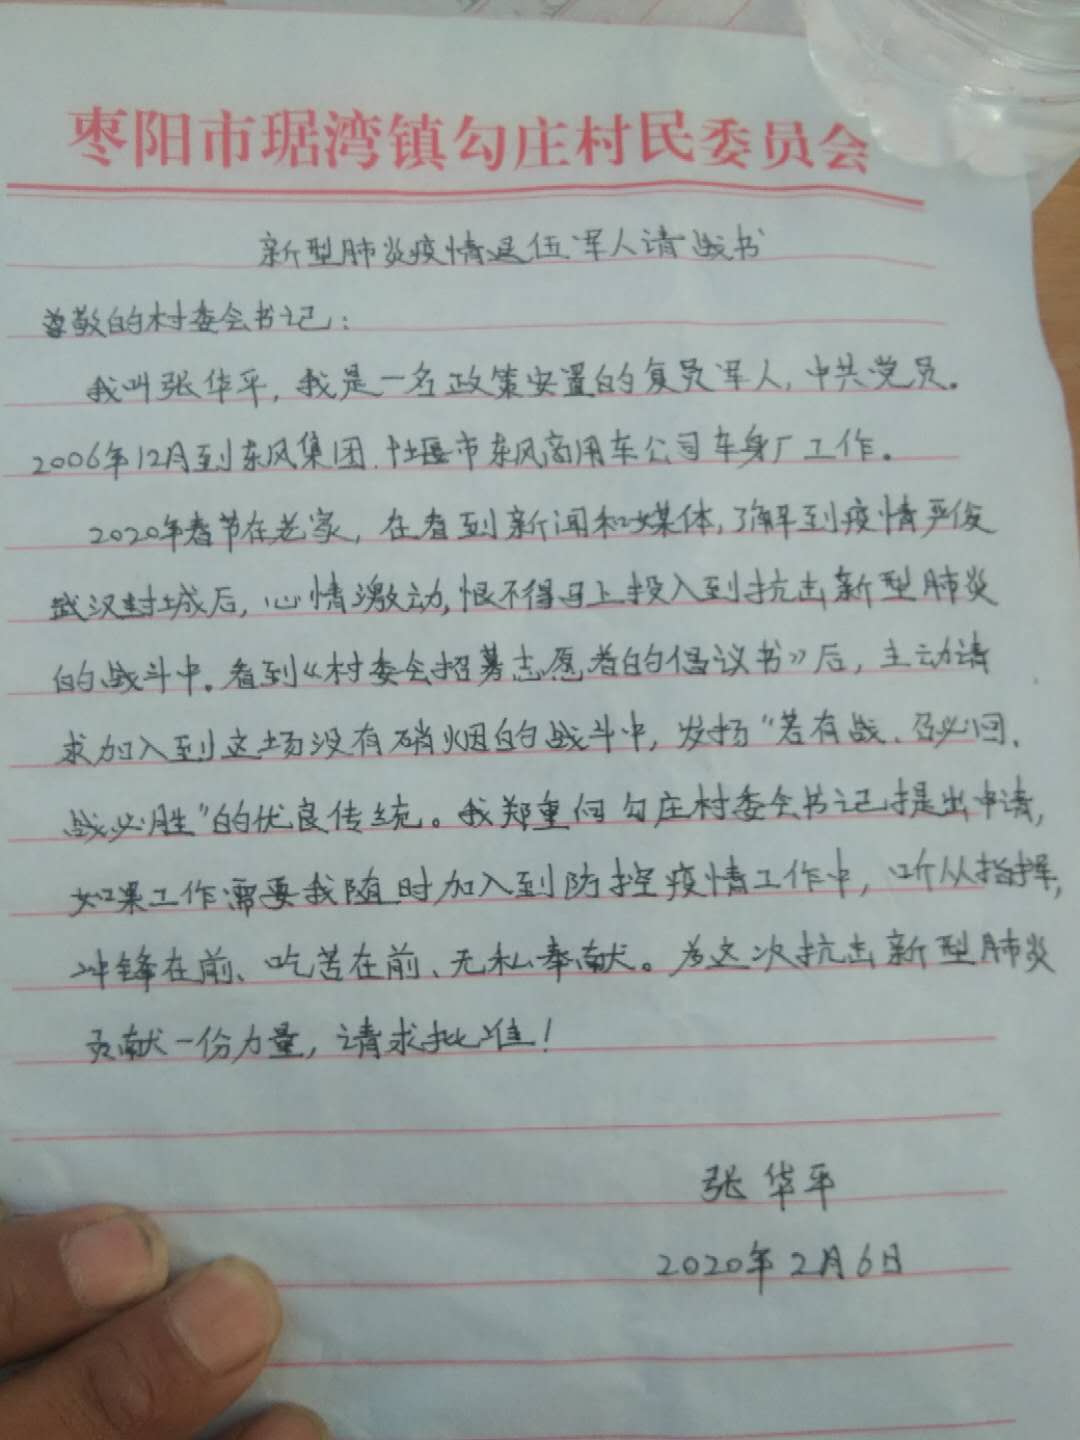 枣阳市琚湾镇勾庄村民委员会
新型肺炎疫情退伍军人请战书
尊敬的村委会书记：
我叫张华平，我是一名政策安置的复员军人，中共党员。
2006年12月到东风集团.十堰市东风商用车公司车身厂工作。
2020年春节在老家，在看到新闻和媒体，了解到疫情严俊
武汉封城后，心情激动，恨不得马上投入到抗击新型肺炎
的战斗中。看到《村委会招募志愿者的倡议书》后，主动请
求加入到这场没有硝烟的战斗中，发扬“若有战、召必回、
战必胜”的优良传统。我郑重向勾庄村委会书记提出申请，
如果工作需要我随时加入到防控疫情工作中，听从指挥，
冲锋在前、吃苦在前、无私奉献。为这次抗击新型肺炎
贡献一份力量，请求批准！
张华平
2020年2月6日